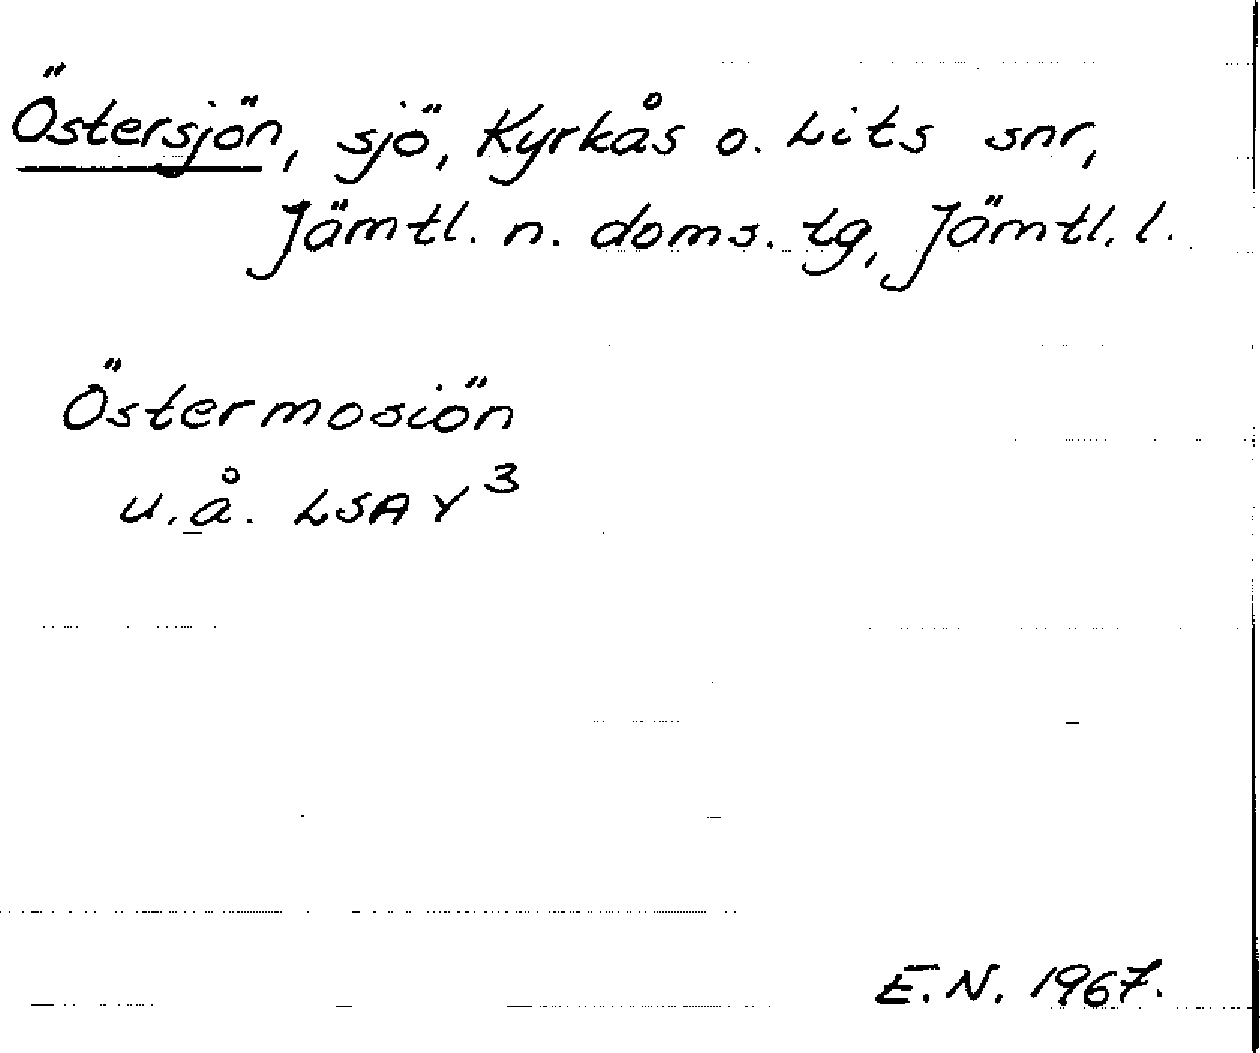 Östersjön, sjö, Kyrkås o. Lits snr,
Jämtl. n. doms. tg, Jämtl. l.
Östermosiön
u.å. LSA Y³
E.N. 1967.